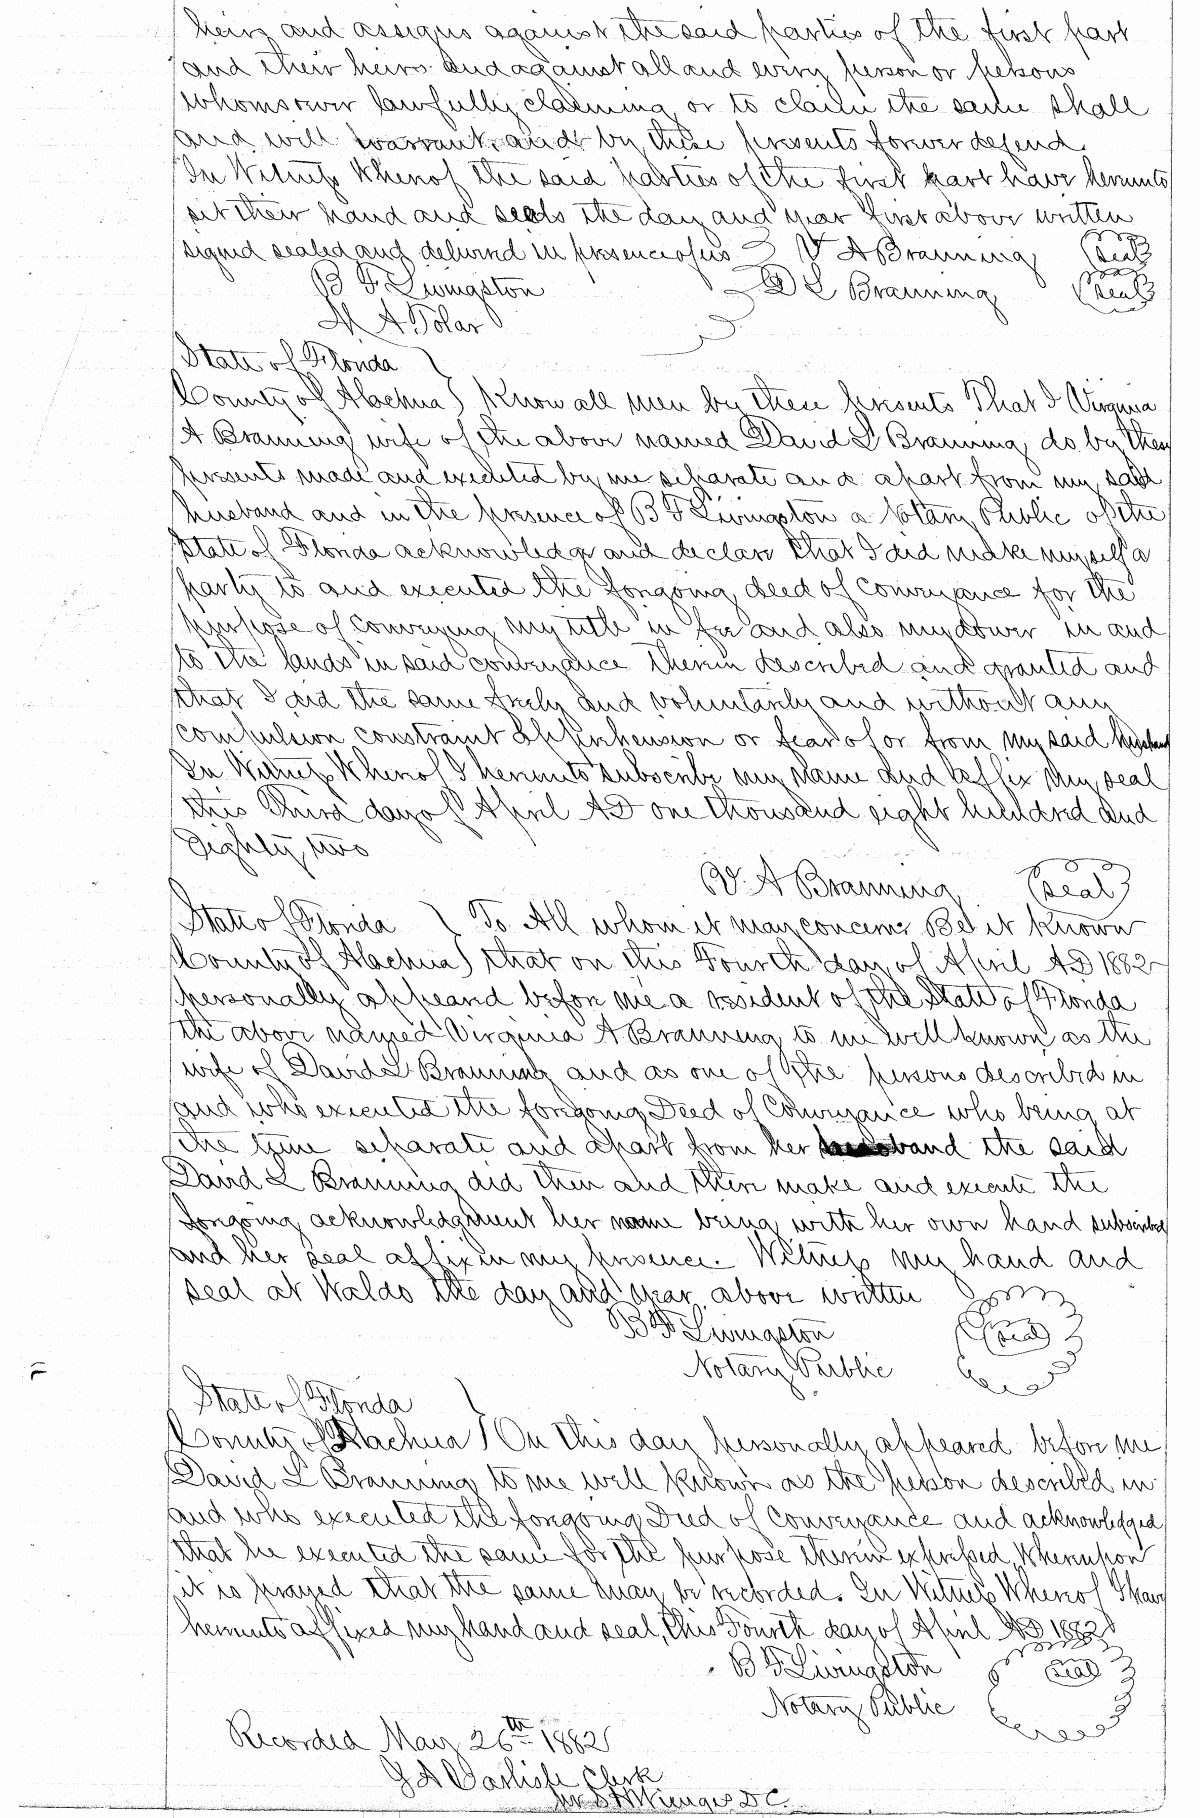 heirs and assigns against the said parties of the first part
and their heirs and against all and every person or persons
whomsoever lawfully claiming or to claim the same shall
and will warrant, and by these presents forever defend.
In Witness Whereof the said parties of the first part have hereunto
set their hand and seals the day and year first above written
signed sealed and delivered in presence of us } V A Branning (seal)
B F Livingston D L Branning (seal)
M A Tolar
State of Florida }
County of Alachua } Know all men by these presents That I Virginia
A Branning wife of the above named David L Branning, do by these
presents made and executed by me separate and apart from my said
husband and in the presence of B F Livingston a Notary Public of the
State of Florida acknowledge and declare that I did make myself a
party to and executed the forgoing deed of Conveyance for the
purpose of Conveying my title in fee and also my dower in and
to the lands in said conveyance therein described and granted and
that I did the same freely and voluntarily and without any
compulsion constraint apprehension or fear of or from my said husband
In Witness Whereof I hereunto subscribe my name and affix my seal
this Third day of April AD one thousand eight hundred and
Eighty two
V. A Branning (seal)
State of Florida } To All whom it may concern Be it Known
County of Alachua } that on this Fourth day of April AD 1882
personally appeared before me a resident of the State of Florida
the above named Virginia A Branning to me well known as the
wife of David L Branning and as one of the persons described in
and who executed the foregoing Deed of Conveyance who being at
the time separate and apart from her husband the said
David L Branning did then and there make and execute the
forgoing acknowledgment her name being with her own hand subscribed
and her seal affix in my presence. Witness my hand and
seal at Waldo the day and year above written
B F Livingston (seal)
Notary Public
State of Florida }
County of Alachua } On this day personally appeared before me
David L Branning to me well known as the person described in
and who executed the foregoing Deed of Conveyance and acknowledged
that he executed the same for the purpose therein expressed, Whereupon
it is prayed that the same may be recorded. In Witness Whereof I have
hereunto affixed my hand and seal, this Fourth day of April AD 1882
B F Livingston (seal)
Notary Public
Recorded May 26th 1882
J A Carlisle Clerk
D.C.